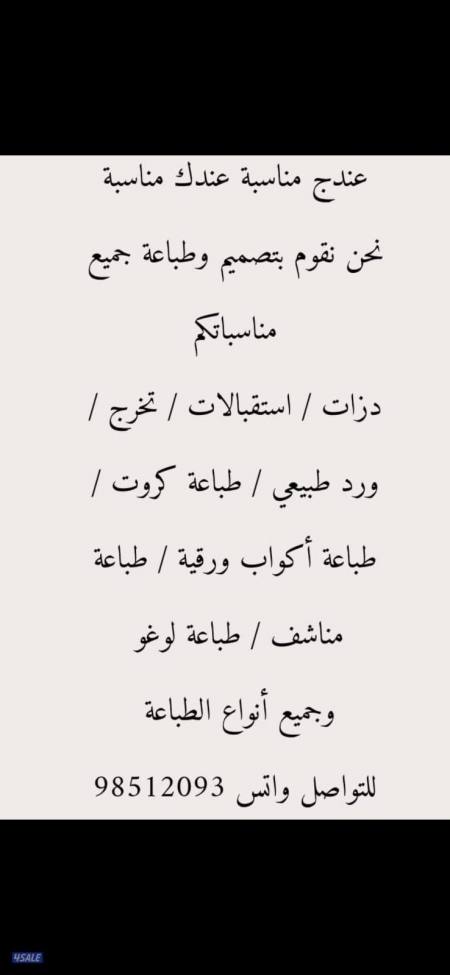 عندج مناسبة عندك مناسبة
نحن نقوم بتصميم وطباعة جميع
مناسباتكم
دزات / استقبالات / تخرج /
ورد طبيعي / طباعة كروت /
طباعة أكواب ورقية / طباعة
مناشف / طباعة لوغو
وجميع أنواع الطباعة
للتواصل واتس 98512093
4SALE